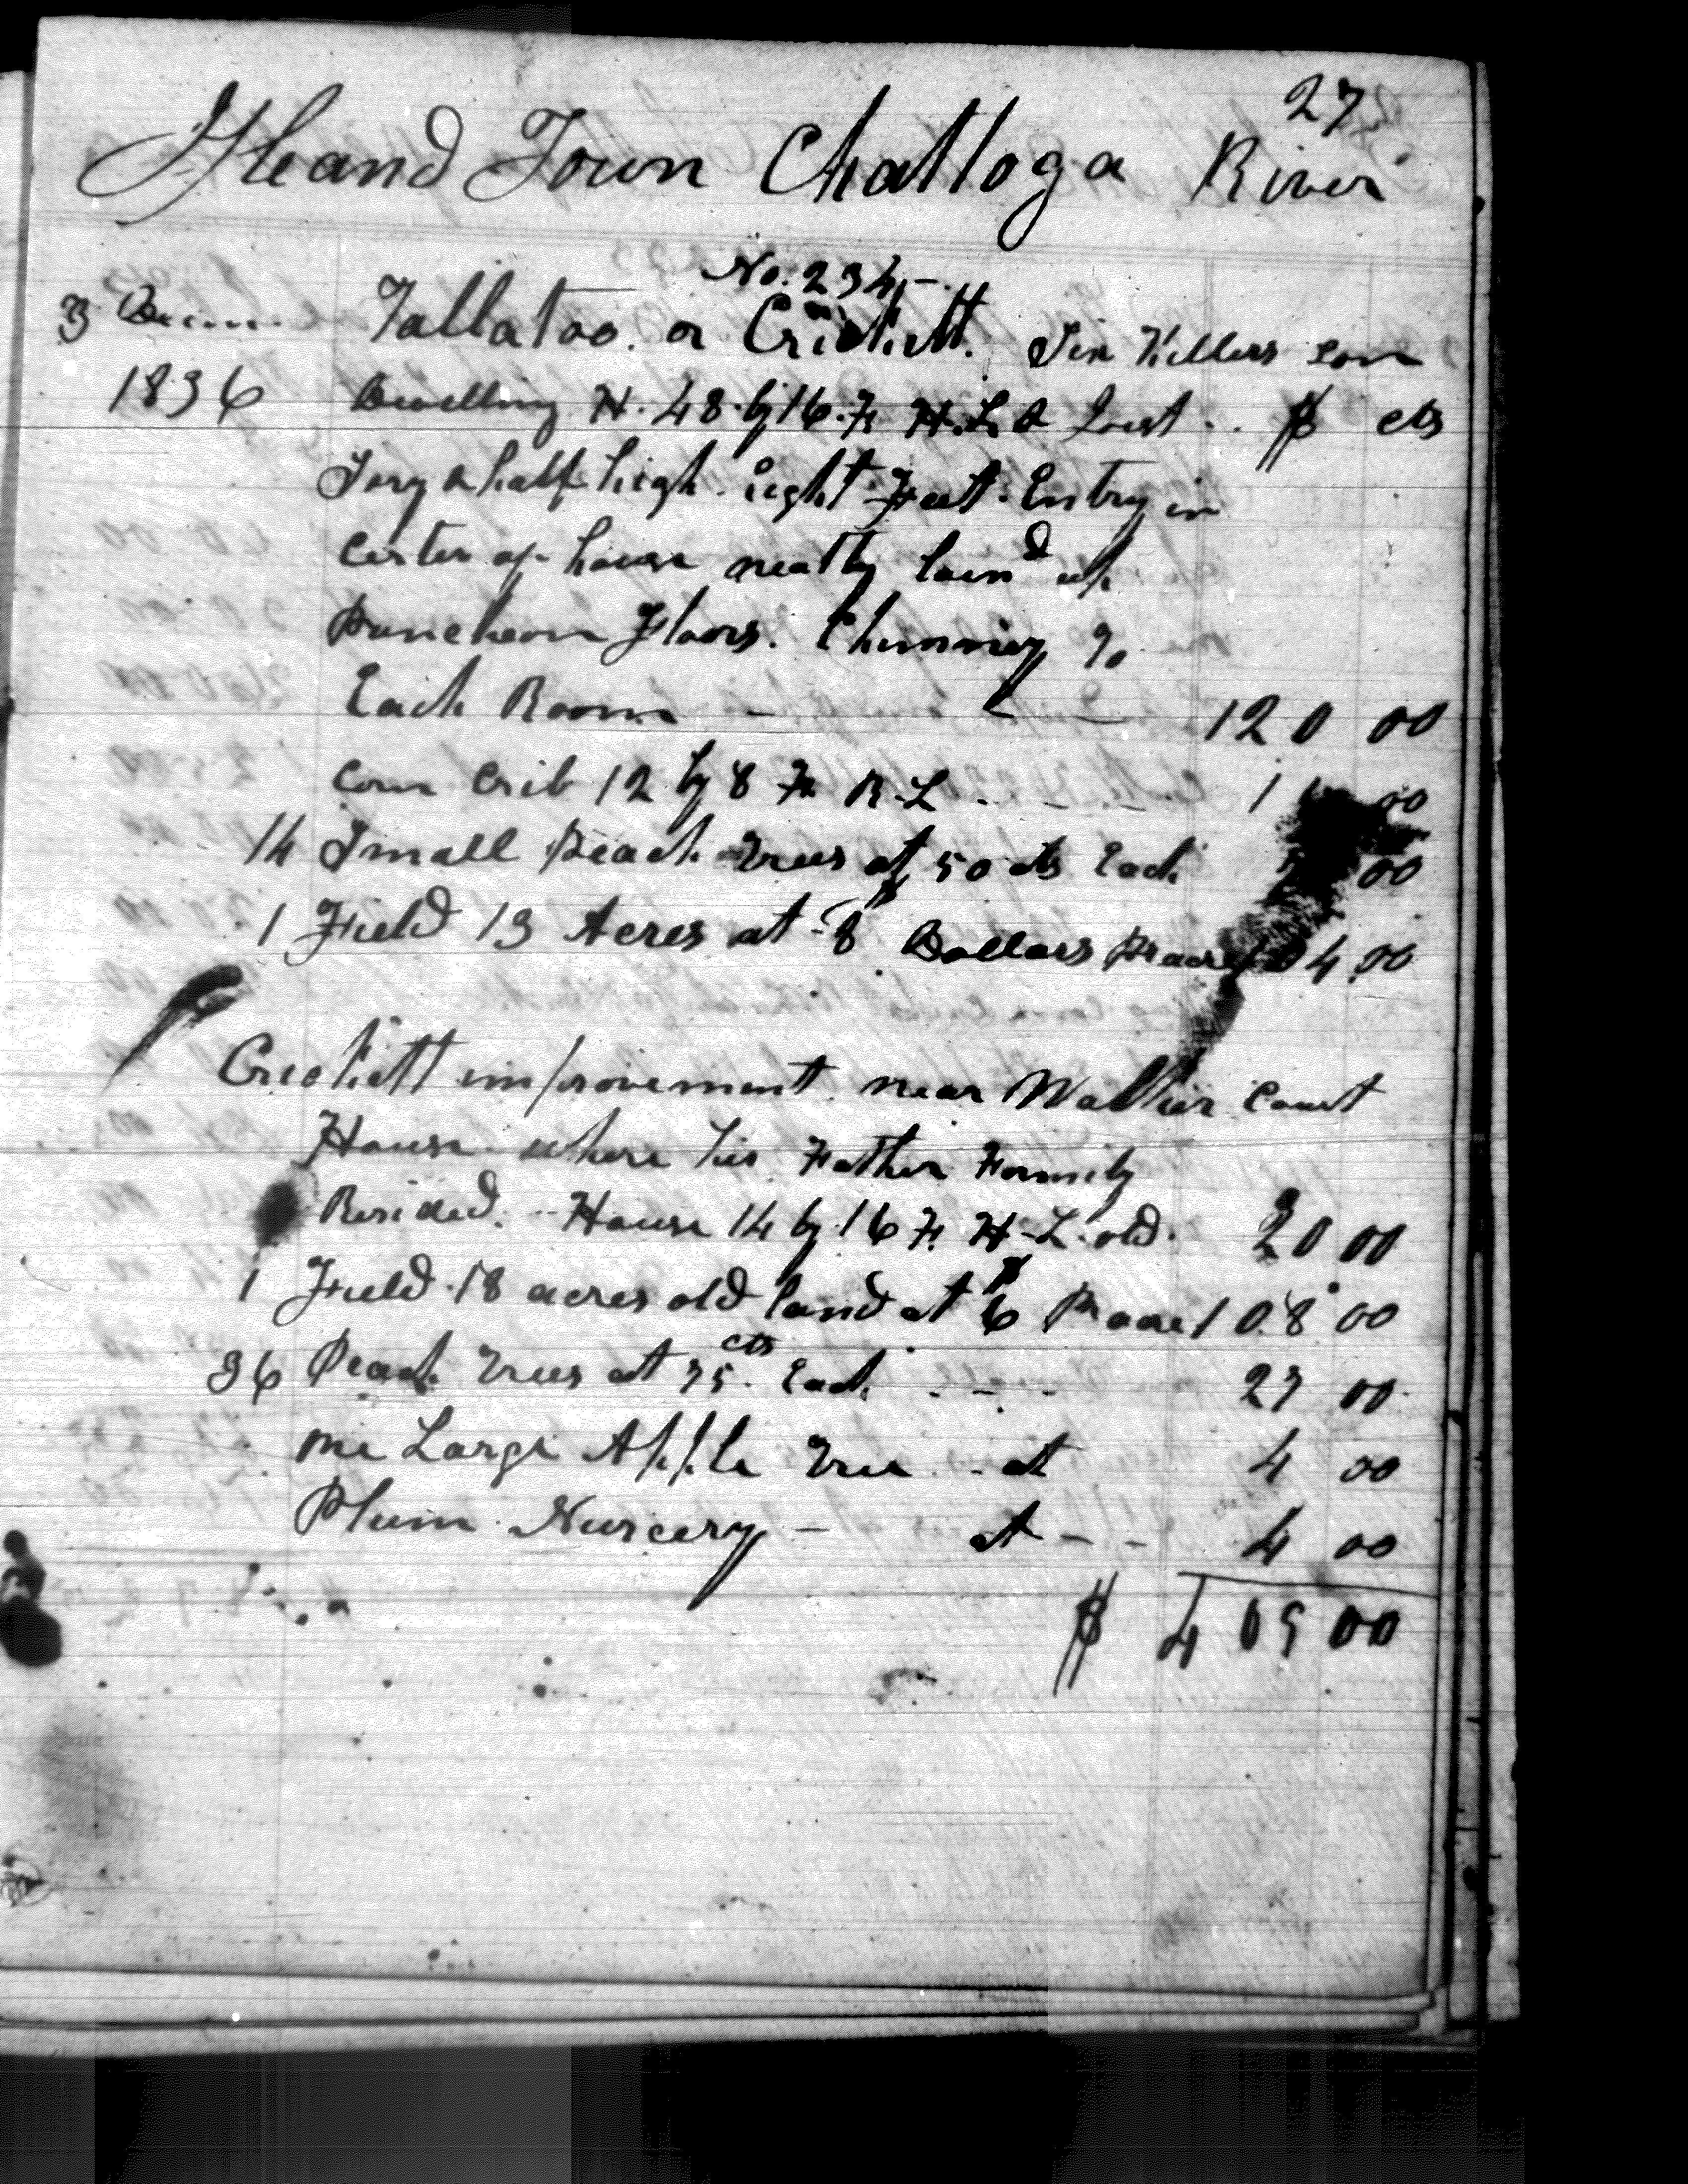 27
Island Town Chattoga River
No. 234 -
3 Decm. Tallatoo. or Crickett. Six Killers son
1836 Dwelling H. 48. by 16. Ft H. L. &
$ cts
Story & half high. eight Feet. Entry in
center of house neatly Coverd up
Puncheon Floors. Chimney To
Each Room - - 120 00
corn Crib 12 by 8 Ft R. L - - - 00
14 Small Peach trees at 50 cts Each 00
1 Field 13 Acres at $8 Dollars Pr acre 104.00
Crickett improvement near Walker Court
House where his Father Formily
Resided. - House 14 by 16 Ft H-L. old. 20 00
1 Field. 18 acres old land at $6 Pr acre 108.00
36 Peach trees at 75 cts. Each. - - - 27 00
one Large Apple tree - at 4 00
Plum Nurcery - at - - 4 00
$ 405 00